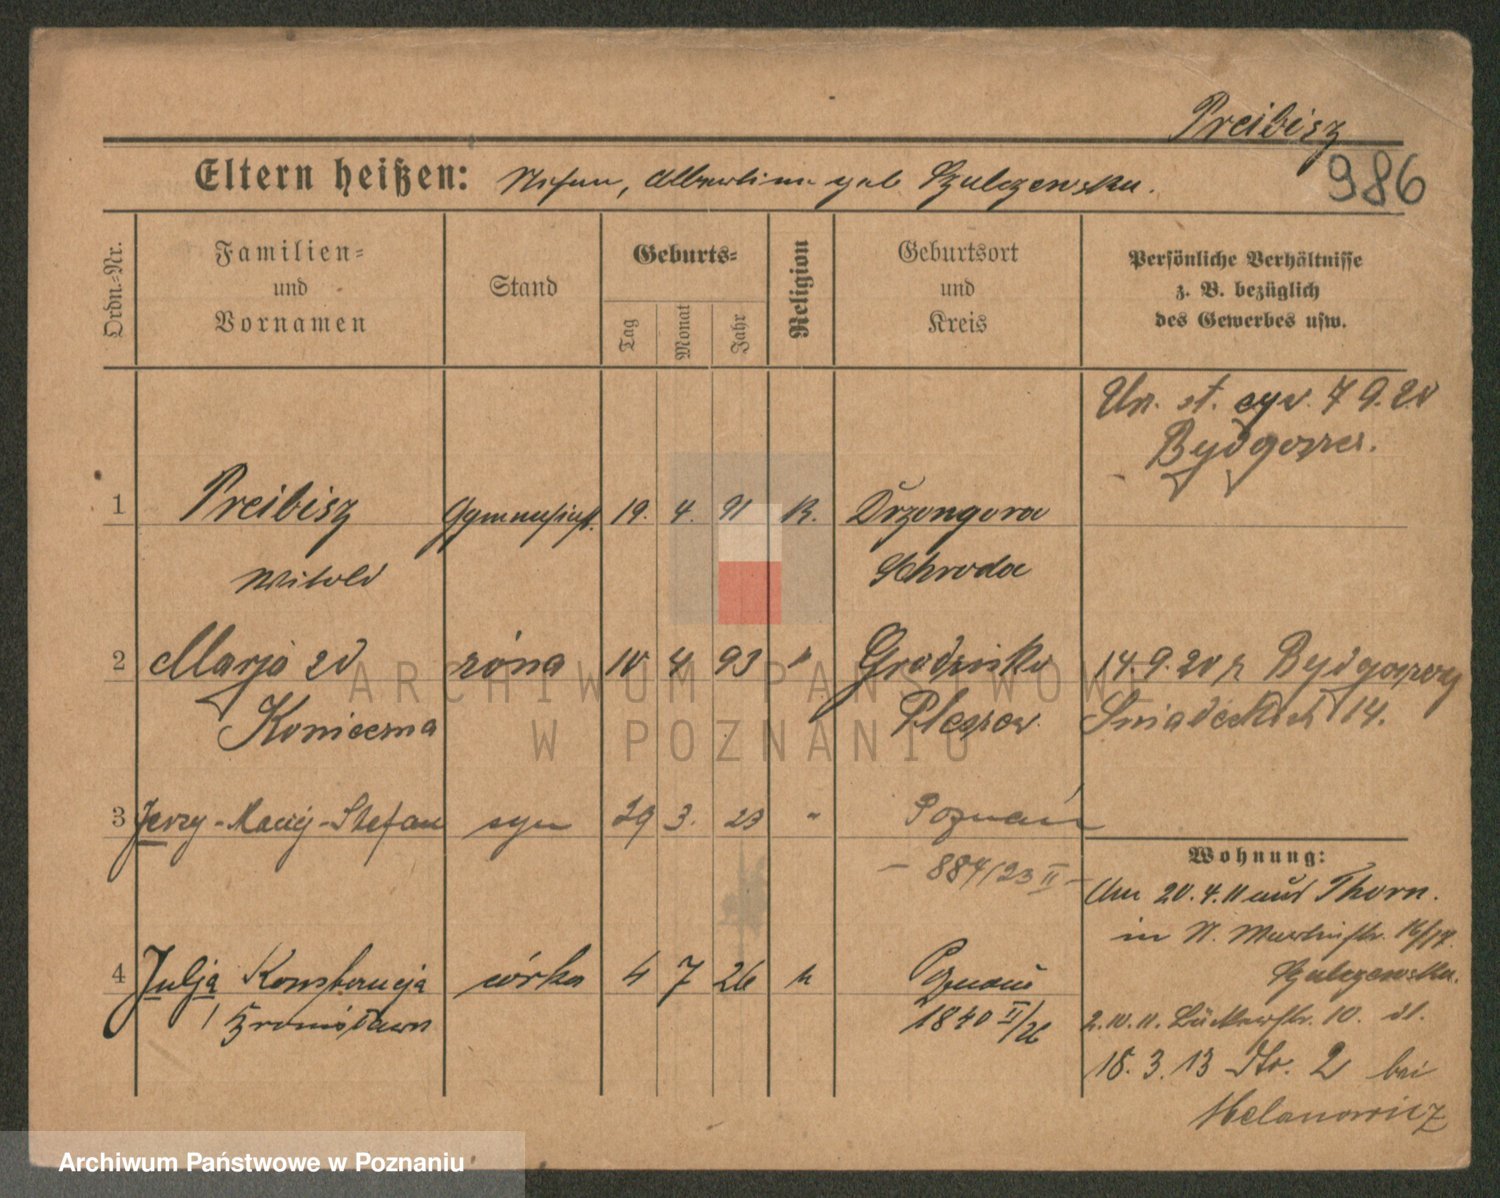 Preibisz
986
Eltern heißen: Stefan, Albertina geb Szulczewska.
Ordn.-Nr.
Familien-
und
Vornamen
Stand
Geburts-
Tag
Monat
Jahr
Religion
Geburtsort
und
Kreis
Persönliche Verhältnisse
z. B. bezüglich
des Gewerbes usw.
Urz. st. cyw. 7 9. 20
Bydgoszcz.
1 Preibisz Gymnasiast. 19. 4. 91 K. Drzongowo
Witold Schroda
2 Marja zd żona 10 4 93 " Grodzisko 14. 9. 20 z Bydgoszczy
Konieczna Pleszew. Śniadeckich 14.
3 Jerzy-Maciej-Stefan syn 29 3. 23 " Poznań
- 884/23 II -
Wohnung:
20. 4. 11 aus Thorn.
in St. Martinstr. 16/17.
4 Julja Konstancja córka 4 7 26 Poznań
Szulczewska.
Bronisława 1840 II/26
2. 10. 11. 10.
18. 3. 13 2 bei
Melanowicz
ARCHIWUM PAŃSTWOWE
W POZNANIU
Archiwum Państwowe w Poznaniu